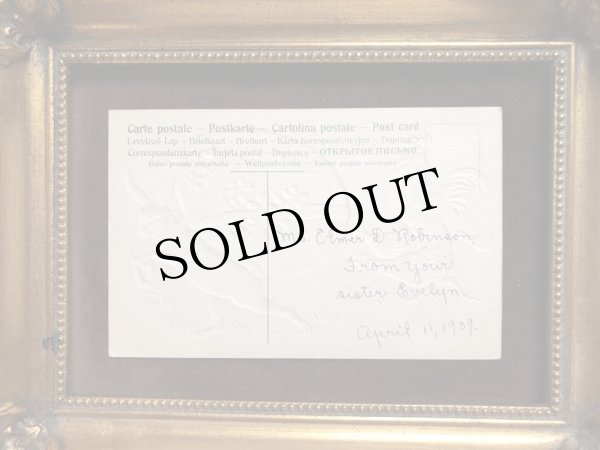 Carte postale – Postkarte – Cartolina postale – Post card
Levelező-Lap – Briefkaart – Brefkort – Карта корреспонденцiйна – Dopisnice
Correspondenzkarte – Tarjeta postal – Dopisnice – ОТКРЫТОЕ ПИСЬМО
Union postale universelle – Weltpostverein – Unione postale universale
SOLD OUT
Elmer D. Robinson
From your
sister, Evelyn.
April 11, 1909.